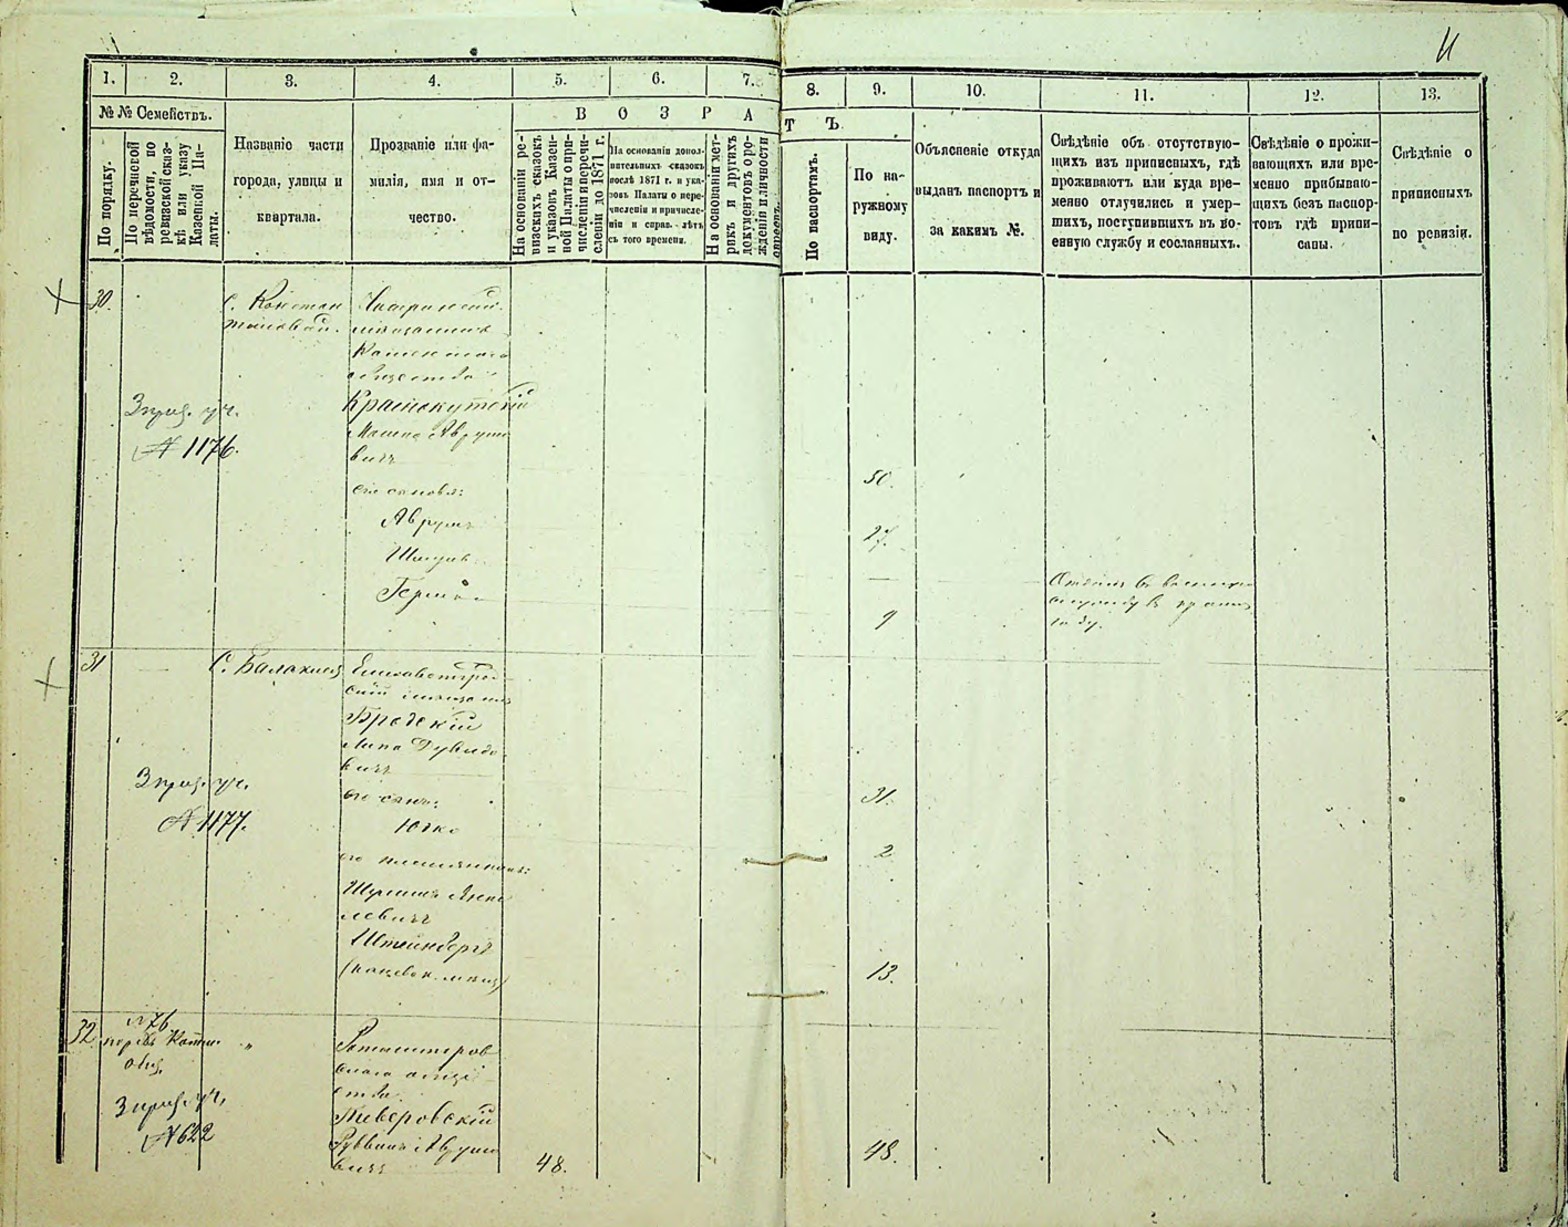 11
1. 2. 3. 4. 5. 6. 7. 8. 9. 10. 11. 12. 13.
№№ Семействъ.
По порядку.
По перечневой
вѣдомости, по
ревизской сказ-
кѣ или указу
Казенной Па-
латы.
Названіе части
города, улицы и
квартала.
Прозваніе или фа-
милія, имя и от-
чество.
ВОЗРАСТЪ
На основаніи ре-
визскихъ сказокъ
и указовъ Казен-
ной Палаты о при-
численіи и перечи-
сленіи до 1871 г.
На основаніи допол-
нительныхъ сказокъ
послѣ 1871 г. и ука-
зовъ Палаты о пере-
численіи и причисле-
ніи и справ. лѣтъ
съ того времени.
На основаніи мет-
рикъ и другихъ
документовъ о ро-
жденіи и личности
По паспортамъ.
По на-
ружному
виду.
Объясненіе откуда
выданъ паспортъ и
за какимъ №.
Свѣдѣніе объ отсутствую-
щихъ изъ приписныхъ, гдѣ
проживаютъ или куда вре-
менно отлучились и умер-
шихъ, поступившихъ въ во-
енную службу и сосланныхъ.
Свѣдѣніе о прожи-
вающихъ или вре-
менно прибываю-
щихъ безъ паспор-
товъ гдѣ припи-
саны.
Свѣдѣніе о
приписныхъ
по ревизіи.
30.
С. Констан
тиновой.
общества
Краснокутскій
Мошко Аврумо
вичъ
50.
его сыновья:
Аврумъ
27.
Шмулъ
—
Гершко
9
3 приз. уч.
№ 1176.
31
С. Балакиевъ
Елисаветград
скій мѣщанинъ
Бродскій
Липа Дувидо
вичъ
31.
его сынъ:
Юдко
2
его племянникъ:
левичъ
Штейнбергъ
13.
3 приз. уч.
№ 1177.
32
№ 76
общ.
"
скаго обще
ства
Тиверовскій
Рувинъ Аврумо
вичъ
48.
48.
3 приз. уч.
№ 622